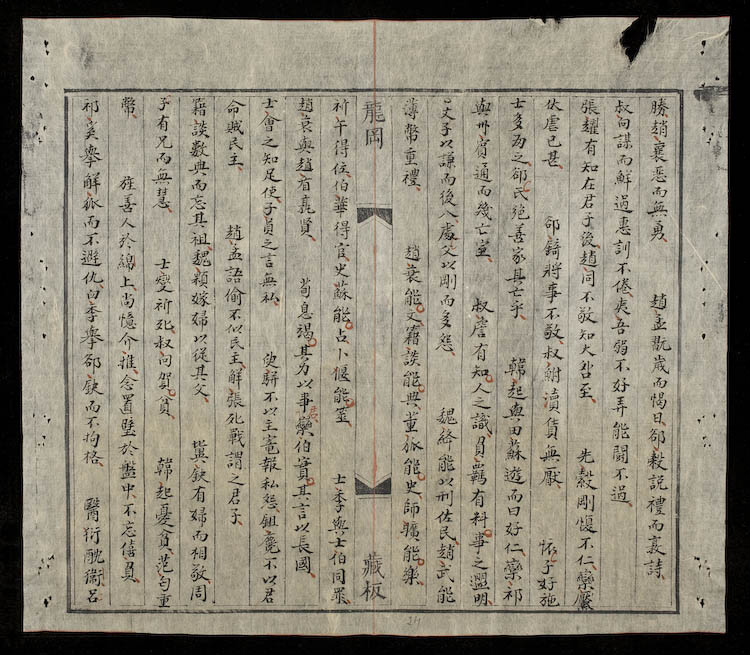 勝趙襄惡而無勇 趙孟翫歲而愒日郤縠説禮而敦詩
叔向謀而鮮過惠訓不倦夷吾弱不好弄能鬪不過
張耀有知在君子後趙同不敬知大咎至 先縠剛愎不仁欒黶
汏虐已甚 郤錡將事不敬叔鮒瀆貨無厭 懷子好施
士多為之郤氏絶善家其亡乎 韓起與田蘇遊而曰好仁欒祁
與州賓通而幾亡室 叔詹有知人之識負羈有料事之盟明
文子以謙而後八處父以剛而多怨 魏絳能以刑佐民趙武能
薄幣重禮 趙衰能文籍談能典董狐能史師曠能樂
龍岡 藏板
祁午得位伯華得官史蘇能占卜偃能筮 士季與士伯同罪
趙衰與趙盾竟賢 荀息竭其力以事君欒伯實其言以長國
士會之知足使子貞之言無私 臾駢不以主寵報私怨鉏麑不以君
命賊民主 趙孟語偷不似民主解張死戰謂之君子
籍談數典而忘其祖魏顆嫁婦以從其父 冀缺有婦而相敬周
子有兄而無慧 士燮祈死叔向賀貧 韓起憂貧范匄重
幣 旌善人於綿上尚憶介推念置璧於盤中不忘僖負
祁奚舉解狐而不避仇臼季舉郤缺而不拘格 醫衍酖衞